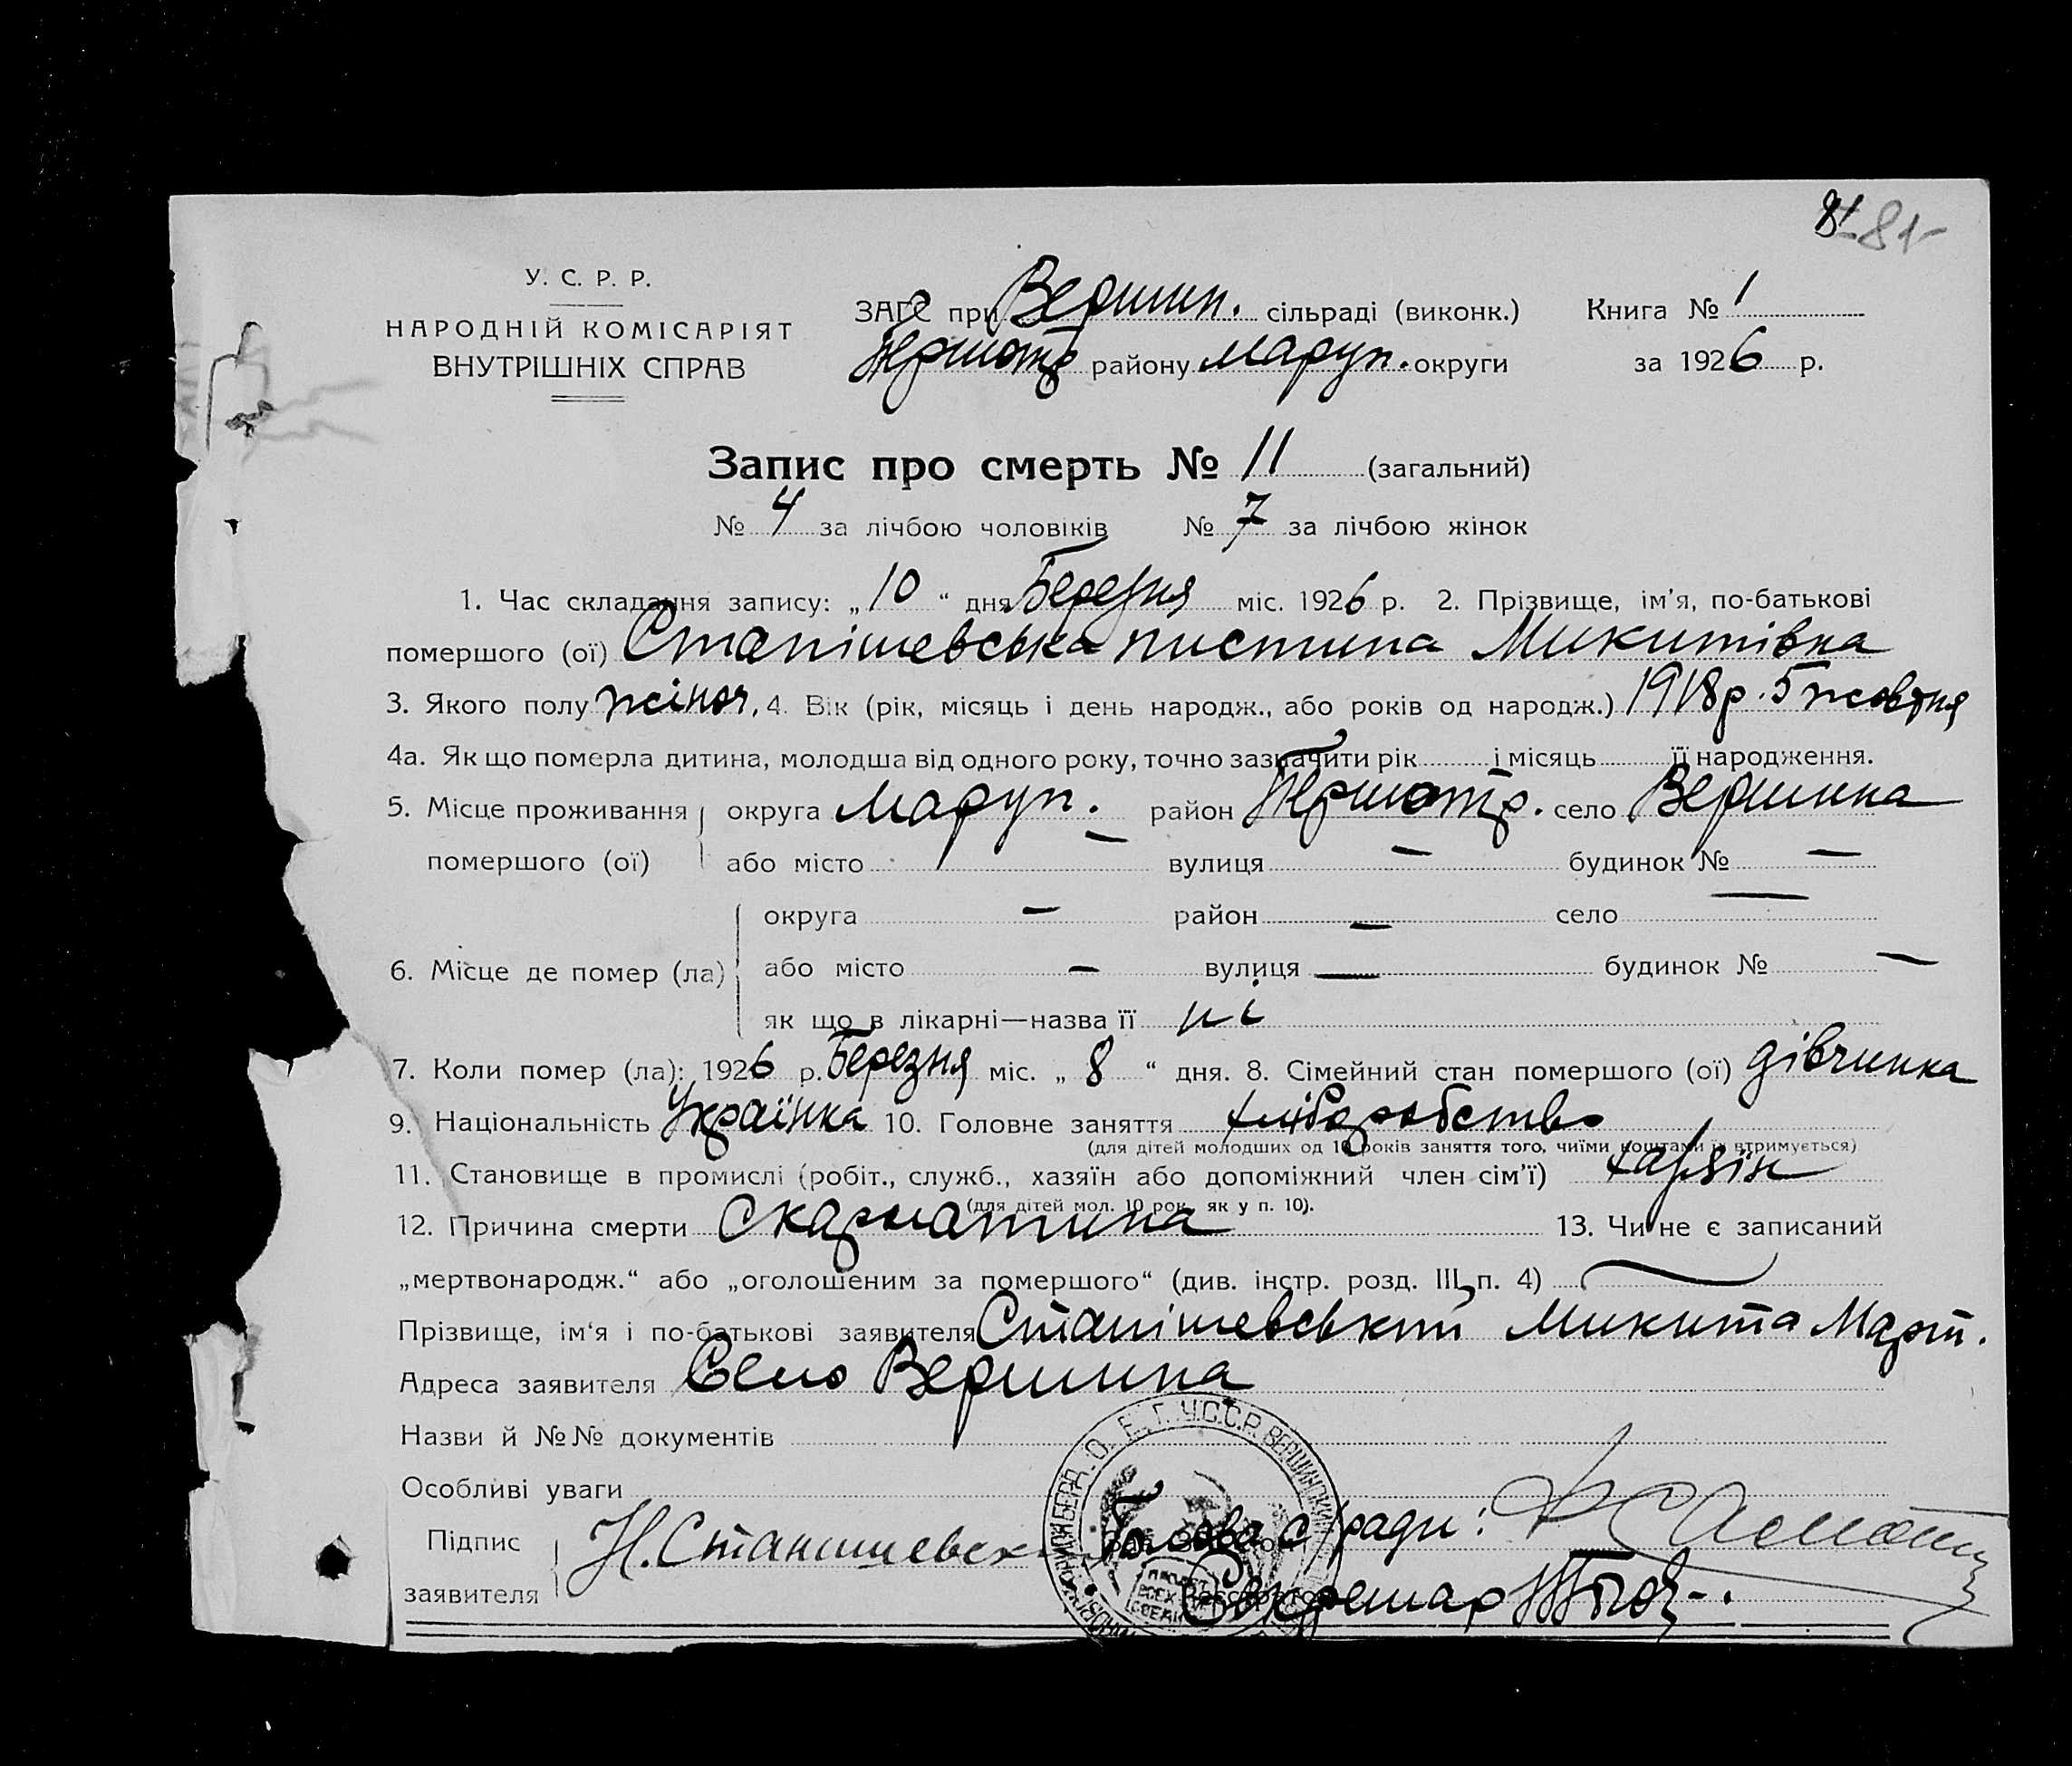 81 81
У. С. Р. Р.
НАРОДНІЙ КОМІСАРІЯТ
ВНУТРІШНІХ СПРАВ
ЗАГС при Вершин. сільраді (виконк.)
району Маруп. округи
Книга № 1
за 1926 р.
Запис про смерть № 11 (загальний)
№ 4 за лічбою чоловіків № 7 за лічбою жінок
1. Час складання запису: „10“ дня Березня міс. 1926 р. 2. Прізвище, ім’я, по-батькові
помершого (ої) Станішевська Пистина Микитівна
3. Якого полу жіноч. 4. Вік (рік, місяць і день народж., або років од народж.) 1918 р. 5 жовтня
4а. Як що померла дитина, молодша від одного року, точно зазначити рік і місяць її народження.
5. Місце проживання округа Маруп. район село Вершина
помершого (ої) або місто — вулиця — будинок № —
округа — район — село —
6. Місце де помер (ла) або місто — вулиця — будинок № —
як що в лікарні—назва її ні
7. Коли помер (ла): 1926 р. Березня міс. „8“ дня. 8. Сімейний стан помершого (ої) дівчинка
9. Національність Українка 10. Головне заняття хліборобство
(для дітей молодших од 10 років заняття того, чиїми коштами їх втримується)
11. Становище в промислі (робіт., служб., хазяїн або допоміжний член сім’ї) хазяїн
(для дітей мол. 10 рок. як у п. 10).
12. Причина смерти Скарлатина 13. Чи не є записаний
„мертвонародж.“ або „оголошеним за помершого“ (див. інстр. розд. III п. 4) —
Прізвище, ім‘я і по-батькові заявителя Станішевський Микита Март.
Адреса заявителя Село Вершина
Назви й №№ документів
Особливі уваги
Підпис
заявителя
Н. Станишевск
Голова с/ради:
Секретар
У.С.С.Р. ВЕРШИНСЬКИЙ